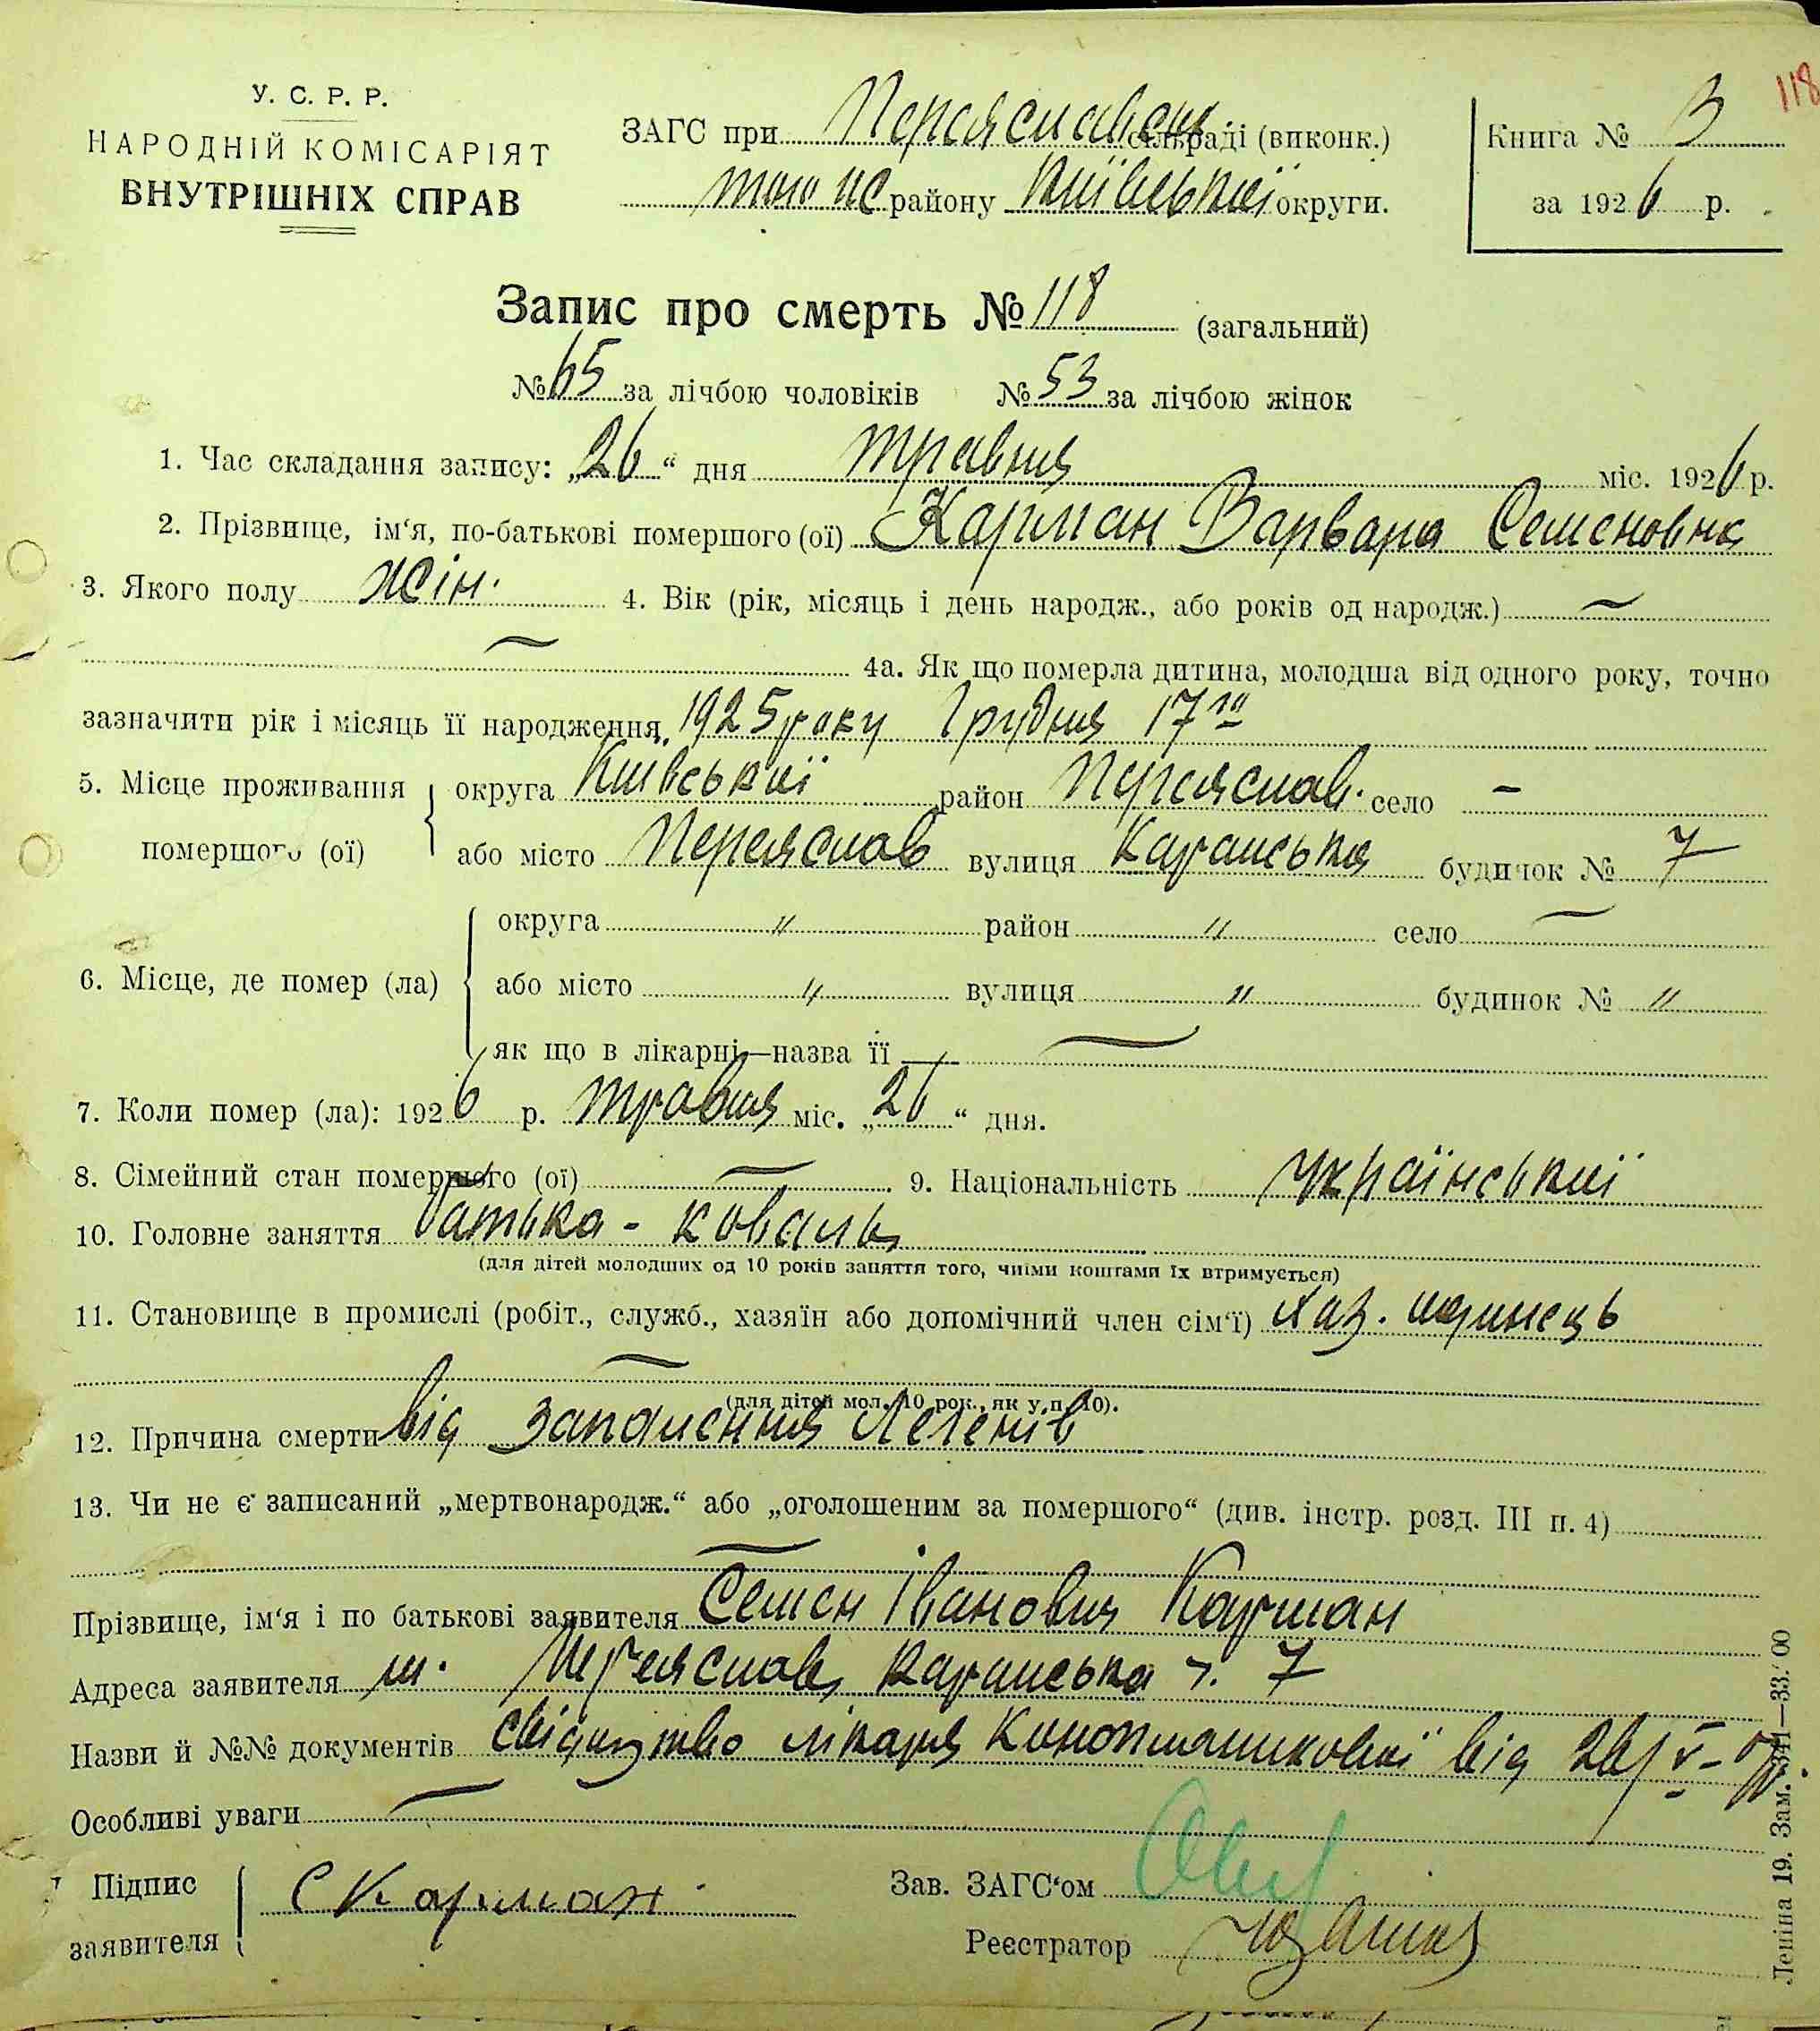 118
У. С. Р. Р.
НАРОДНІЙ КОМІСАРІЯТ
ВНУТРІШНІХ СПРАВ
ЗАГС при Переяславськ сільраді (виконк.)
того ж району Київської округи.
Книга № 3
за 1926 р.
Запис про смерть № 118 (загальний)
№ 65 за лічбою чоловіків № 53 за лічбою жінок
1. Час складання запису: „26“ дня травня міс. 1926 р.
2. Прізвище, ім'я, по-батькові помершого (ої) Карман Варвара Семеновна
3. Якого полу жін. 4. Вік (рік, місяць і день народж., або років од народж.) —
— 4а. Як що померла дитина, молодша від одного року, точно
зазначити рік і місяць її народження 1925 року Грудня 17го
5. Місце проживання помершого (ої) округа Київської район Переяслав. село -
або місто Переяслав вулиця Каранська будинок № 7
6. Місце, де помер (ла) округа " район " село —
або місто " вулиця " будинок № "
як що в лікарні—назва її —
7. Коли помер (ла): 1926 р. травня міс. „26“ дня.
8. Сімейний стан помершого (ої) — 9. Національність української
10. Головне заняття батька - коваль
(для дітей молодших од 10 років заняття того, чиїми коштами їх втримується)
11. Становище в промислі (робіт., служб., хазяїн або допомічний член сім'ї) хаз. один
—
(для дітей мол. 10 рок., як у п. 10).
12. Причина смерти від запалення Легенів
13. Чи не є записаний „мертвонародж.“ або „оголошеним за помершого“ (див. інстр. розд. III п. 4)
—
Прізвище, ім'я і по батькові заявителя Семен Іванович Карман
Адреса заявителя м. Переяслав, Каранська ч. 7
Назви й №№ документів свідоцтво лікаря від 26/V-
Особливі уваги —
Підпис заявителя С Карман
Зав. ЗАГС'ом
Реєстратор
Леніна 19. Зам. 341—33.